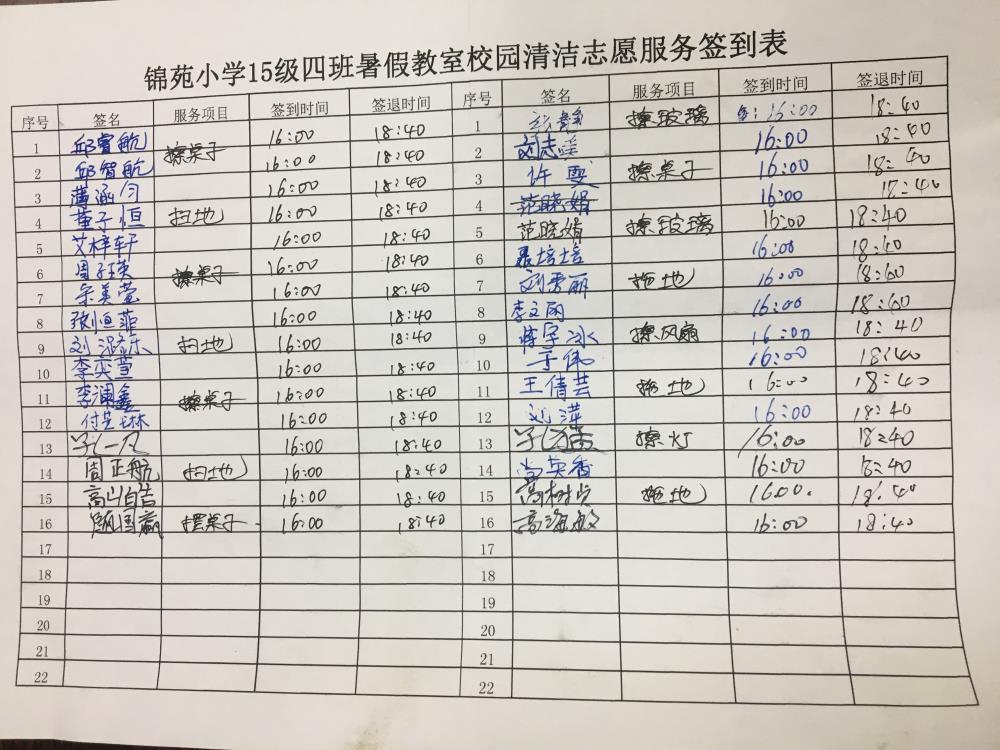 锦苑小学15级四班暑假教室校园清洁志愿服务签到表
序号 签名 服务项目 签到时间 签退时间 序号 签名 服务项目 签到时间 签退时间
1 邱智航 擦桌子 16:00 18:40 1 擦玻璃 16:00 18:40
2 邱智航 16:00 18:40 2 刘志遥 16:00 18:40
3 16:00 18:40 3 许雯 擦桌子 16:00 18:40
4 董子恒 扫地 16:00 18:40 4 范晓娟 16:00 18:40
5 艾梓轩 16:00 18:40 5 范晓娟 擦玻璃 16:00 18:40
6 周钰瑛 擦桌子 16:00 18:40 6 聂培培 16:00 18:40
7 宋美莹 16:00 18:40 7 刘秀丽 拖地 16:00 18:60
8 张恒菲 16:00 18:40 8 李文雨 16:00 18:60
9 扫地 16:00 18:40 9 擦风扇 16:00 18:40
10 李奕萱 16:00 18:40 10 于伟 16:00 18:40
11 李澜鑫 擦桌子 16:00 18:40 11 王倩芸 拖地 16:00 18:40
12 付芸琳 16:00 18:40 12 刘萍 16:00 18:40
13 16:00 18:40 13 擦灯 16:00 18:40
14 周正航 扫地 16:00 18:40 14 尚英香 16:00 18:40
15 16:00 18:40 15 高树占 拖地 16:00. 18:40
16 摆桌子 16:00 18:40 16 高海敏 16:00 18:40
17 17
18 18
19 19
20 20
21 21
22 22